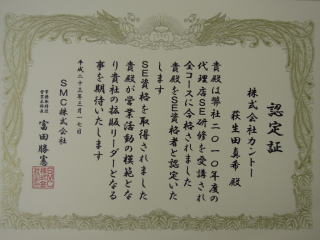 認定証
株式会社カントー
萩生田真希 殿
貴殿は弊社二〇一〇年度の
代理店SE研修を受講され
全コースに合格されました
貴殿をSE資格者と認定いた
します
SE資格を取得されました
貴殿が営業活動の模範とな
り貴社の拡販リーダーとなる
事を期待いたします
平成二十三年三月一七日
SMC株式会社
常務取締役
富田勝憲